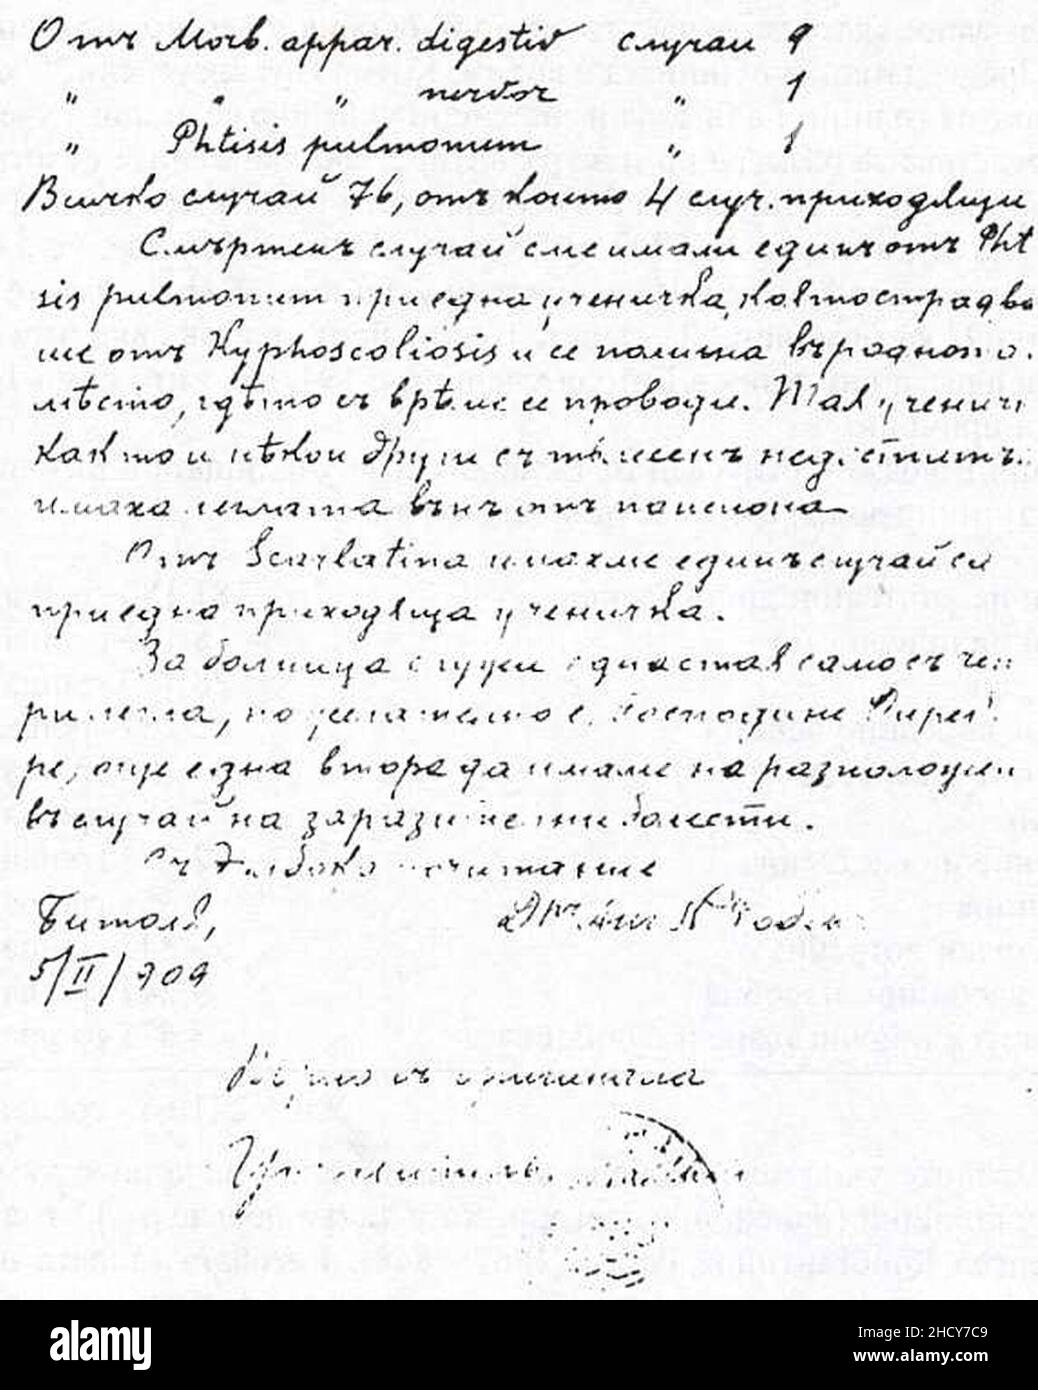 Отъ Morb. appar. digestiv случаи 9
" " " nervor " 1
" Phtisis pulmonum " 1
Всичко случай 76, отъ които 4 случ. приходящи
Смъртенъ случай сме имали единъ отъ Phti
sis pulmonum при една ученичка, която страда
ше отъ Kyphoscoliosis и се помина въ родното
мѣсто, гдѣто съ врѣме се проводи. Тая учени
както и нѣкои други съ тѣлесенъ недостатъ
имаха леглата вънъ отъ пансиона
Отъ Scarlatina имахме единъ случай
при една приходяща ученичка.
За болница служи една стая само съ че
ри легла, но желателно е, Господине Дирек
ре, още една втора да имаме на разположен
въ случай на заразителни болести.
Съ дълбоко почитание
Битоля,
5/II/909
Вѣрно съ оригинала
alamy
Image ID: 2HCY7C9
www.alamy.com